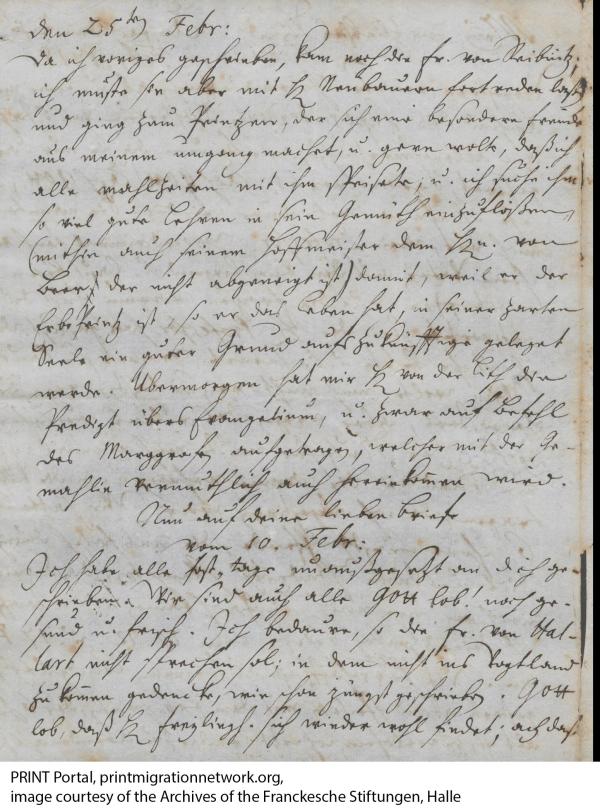 den 25ten Febr:
Da ich voriges geschrieben, kam noch die Fr. von Reibnitz;
ich muste sie aber mit H Neubauern fortreden lassen
und ging zum Printzen, der sich eine besondere freude
aus meinem umgang machet, u. gern wolte, daß ich
alle mahlzeiten mit ihm speisete, u. ich suche ihm
so viel gute Lehren in sein Gemüth einzuflößen,
(mithin auch seinem Hoffmeister dem H. von
der nicht abgeneigt ist) damit, weil er der
ErbPrintz ist, so er das Leben hat, in seiner zarten
Seele ein guter Grund aufs zukünfftige geleget
werde. Übermorgen hat mir H von der Lith die
Predigt übers Evangelium, u. zwar auf Befehl
des Marggrafen aufgetragen, welcher mit der Ge-
mahlin vermuthlich auch hereinkommen wird.
Nun auf deine lieben briefe
vom 10. Febr:
Ich habe alle post-tage unausgesetzt an dich ge-
schrieben. Wir sind auch alle Gott lob! noch ge-
sund u. frisch. Ich bedaure, so die Fr. von Hal-
lart nicht sprechen sol; in dem nicht ins Vogtland
zu kommen gedencke, wie schon jüngst geschrieben. Gott
lob, daß H Freylingh. sich wieder wohl findet; ach daß
PRINT Portal, printmigrationnetwork.org,
image courtesy of the Archives of the Franckesche Stiftungen, Halle